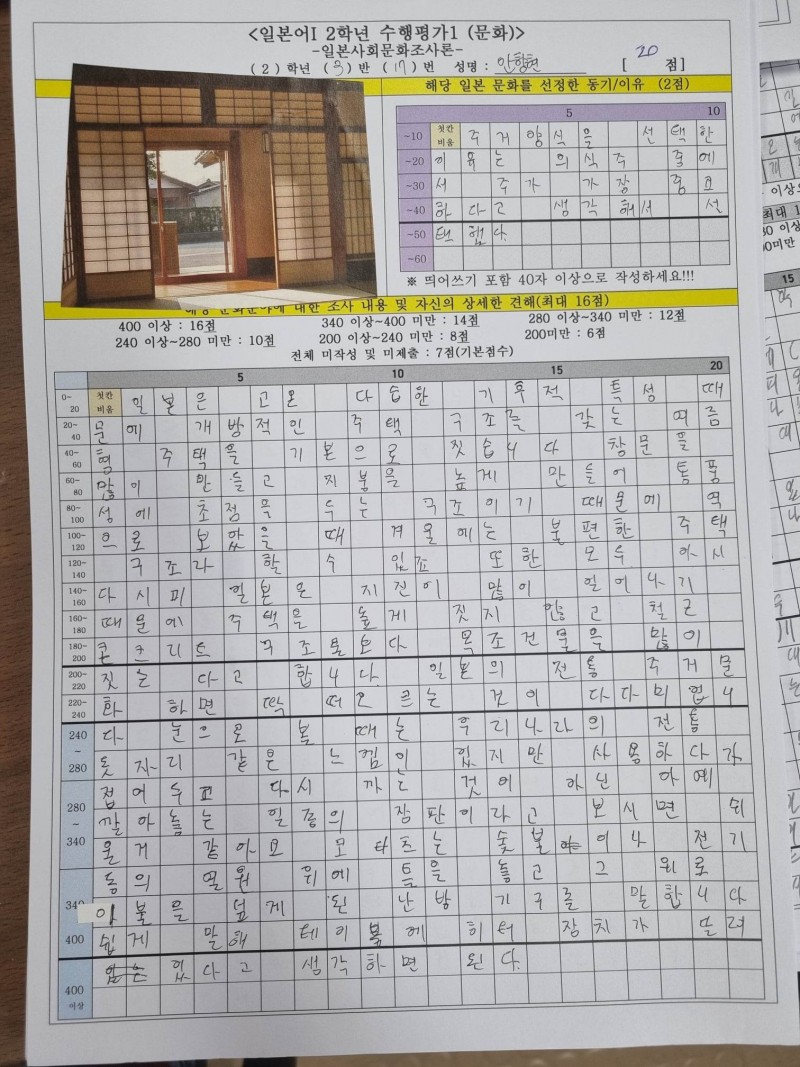 <일본어Ⅰ 2학년 수행평가1 (문화)>
-일본사회문화조사론-
( 2 ) 학년 ( 3 ) 반 ( 17 ) 번 성명 : 안형현 [ 20 점]
해당 일본 문화를 선정한 동기/이유 (2점)
5 10
~10 첫칸 비움 주거양식을 선택한
~20 이유는 의식주 중에
~30 서 주가 가장 중요
~40 하다고 생각해서 선
~50 택했다.
~60
※ 띄어쓰기 포함 40자 이상으로 작성하세요!!!
해당 문화분야에 대한 조사 내용 및 자신의 상세한 견해(최대 16점)
400 이상 : 16점 340 이상~400 미만 : 14점 280 이상~340 미만 : 12점
240 이상~280 미만 : 10점 200 이상~240 미만 : 8점 200미만 : 6점
전체 미작성 및 미제출 : 7점(기본점수)
5 10 15 20
0~20 첫칸 비움 일본은 고온 다습한 기후적 특성 때
20~40 문에 개방적인 주택 구조를 갖는 여름
40~60 형 주택을 기본으로 짓습니다 창문을
60~80 많이 만들고 지붕을 높게 만들어 통풍
80~100 성에 초점을 두는 구조이기 때문에 역
100~120 으로 보았을 때 겨울에는 불편한 주택
120~140 구조라 할 수 있죠 또한 모두 아시
140~160 다시피 일본은 지진이 많이 일어나기
160~180 때문에 주택을 높게 짓지 않고 철근
180~200 콘크리트 구조물보다 목조건물을 많이
200~220 짓는 다고 합니다. 일본의 전통 주거문
220~240 화 하면 딱 떠오르는 것이 다다미 입니
240 ~ 다 눈으로 볼 때는 우리나라의 전통
280 돗자리 같은 느낌이 있지만 사용하다가
280 접어두고 다시 까는 것이 아닌 아예
~ 깔아놓는 일종의 장판이라고 보시면 쉬
340 울거 같아요 코타츠는 숯불이나 전기
등의 열원 위에 틀을 놓고 그 위로
340 이불을 덮게 된 난방 기구를 말합니다
400 쉽게 말해 테이블에 히터 장치가 달려
400 이상 있다고 생각하면 된다.